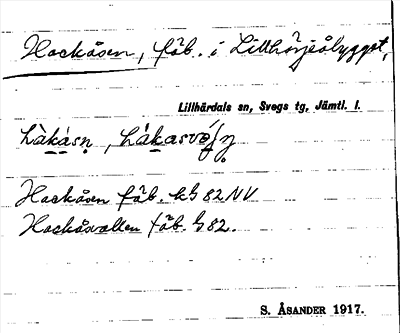 Hackåsen, fäb. i Lillhärjeåbygget,
Lillhärdals sn, Svegs tg, Jämtl. l.
Hackåsen fäb. kG 82 NV
Hackåsvallen fäb. G 82.
S. ÅSANDER 1917.